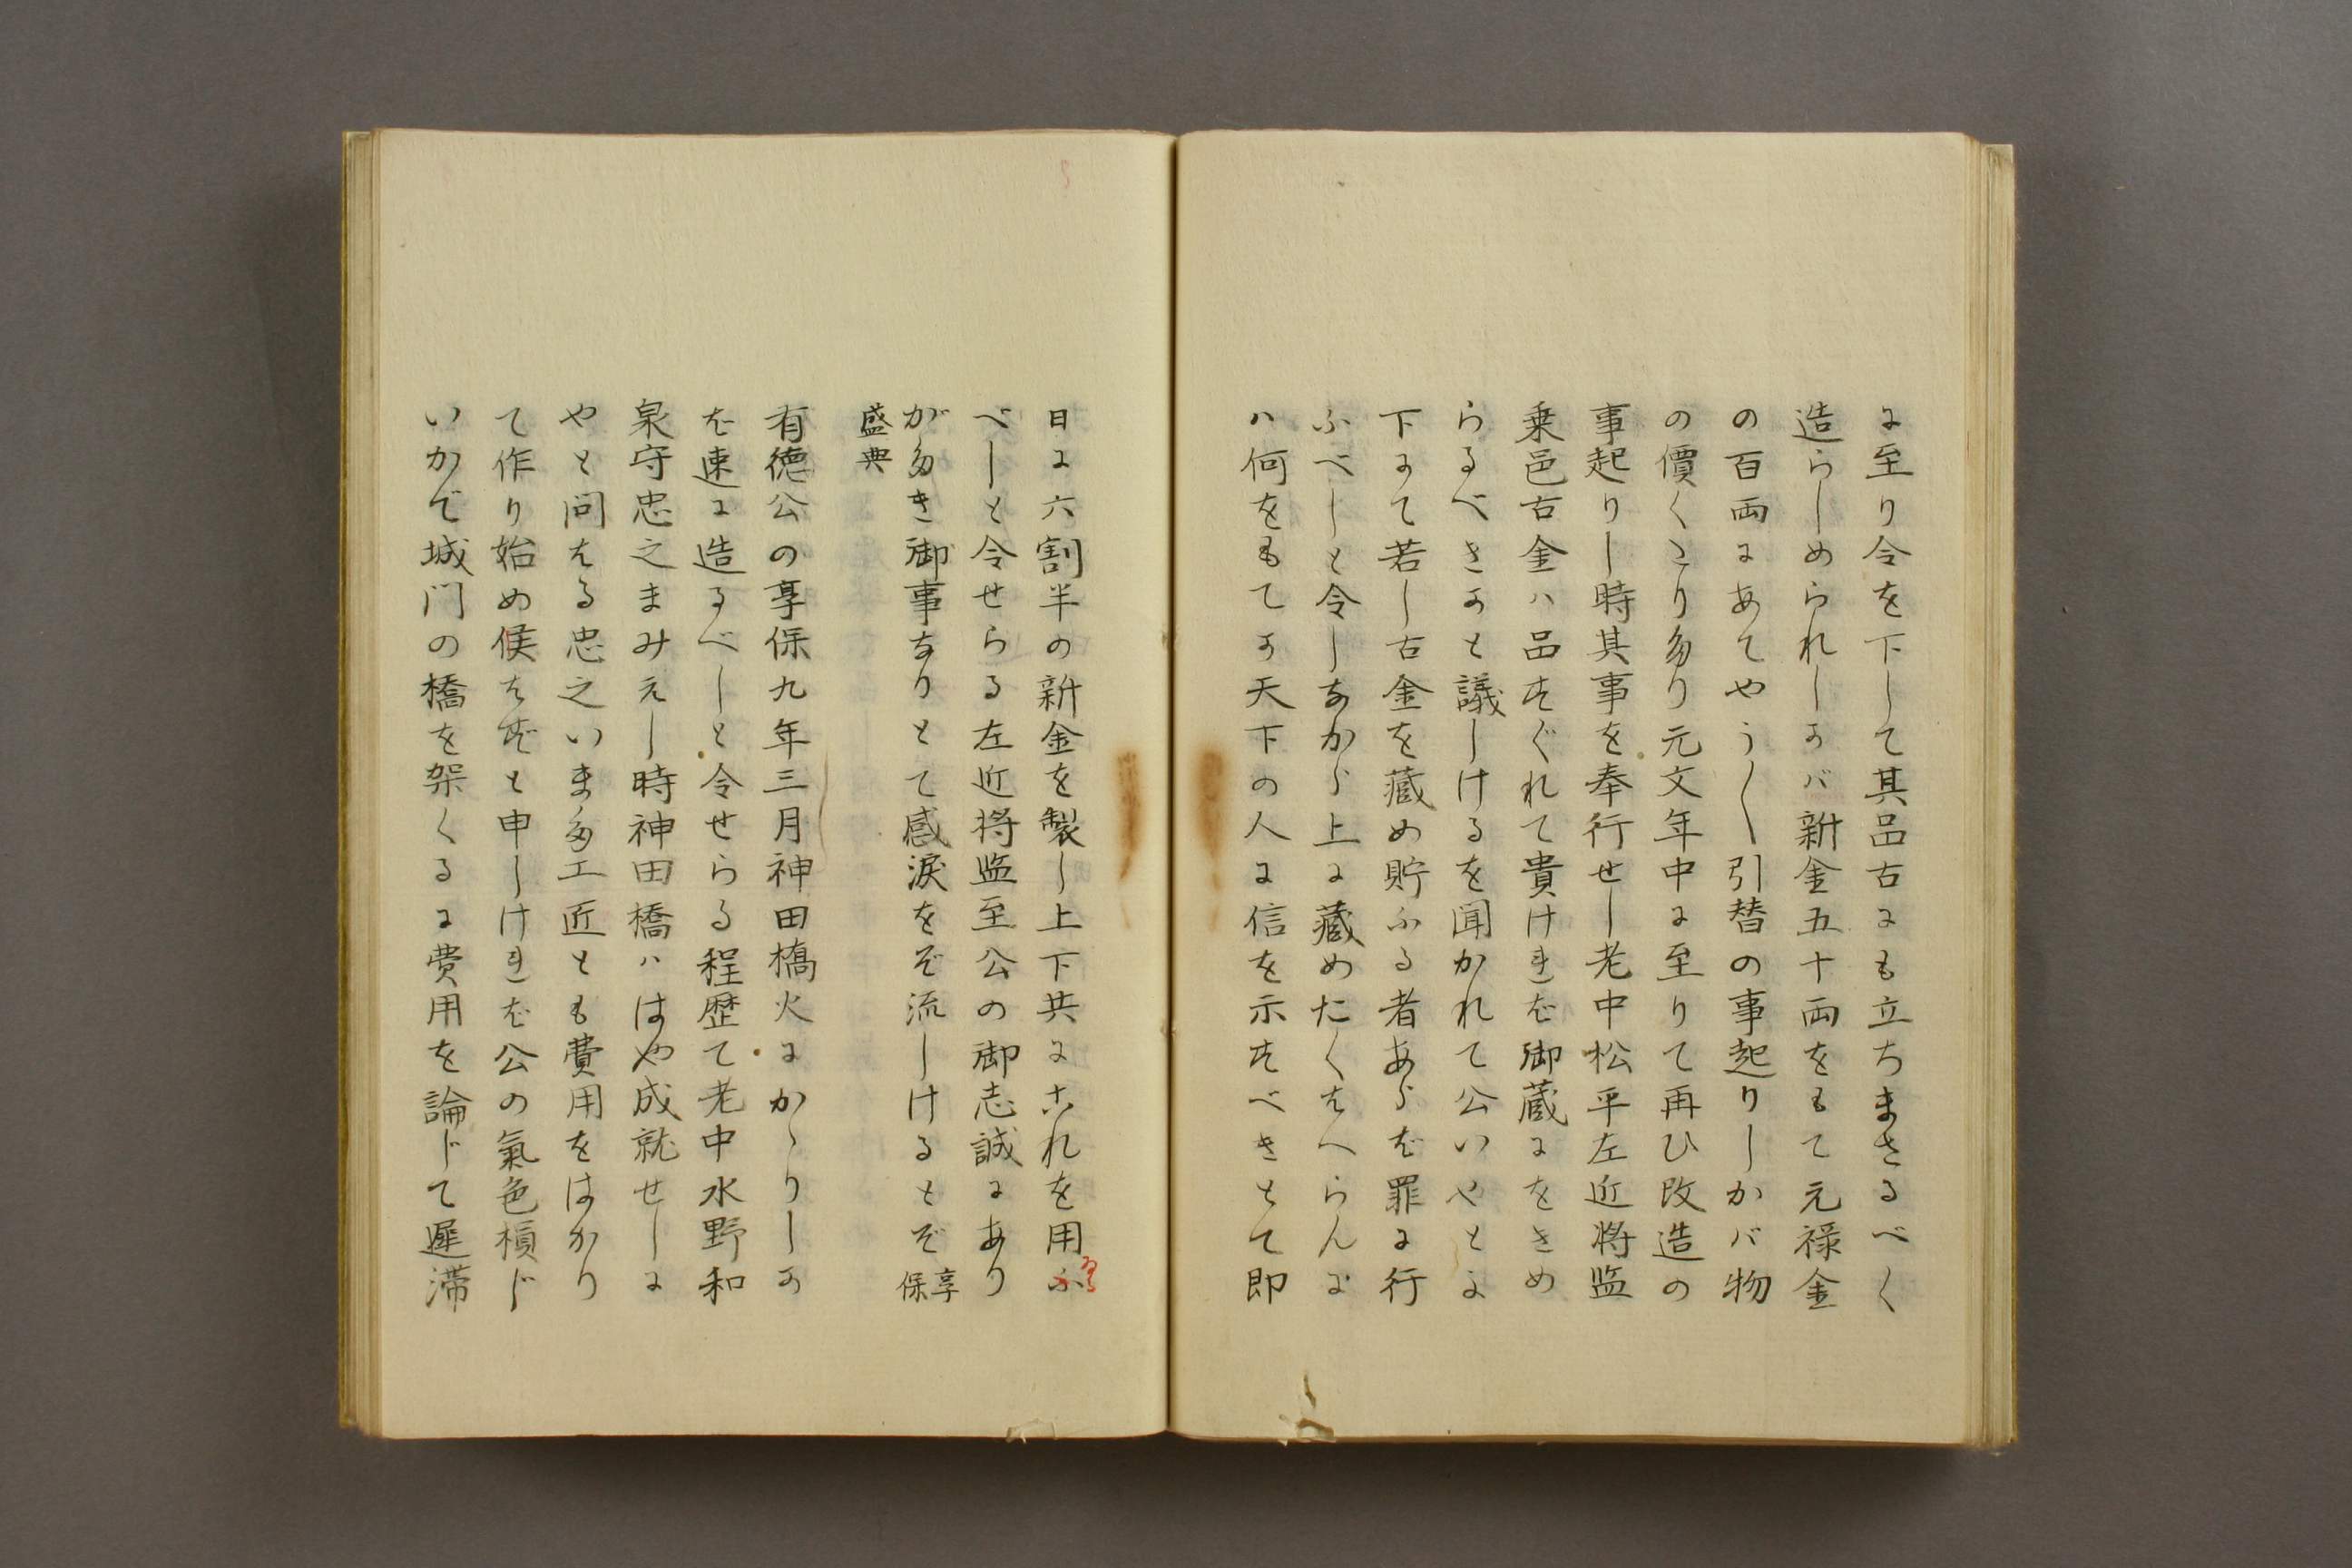 に至り令を下して其品古にも立ちまさるべく
造らしめられしかバ新金五十両をもて元禄金
の百両にあてやう〳〵引替の事起りしかバ物
の價くこり多り元文年中に至りて再ひ改造の
事起りし時其事を奉行せし老中松平左近将監
乗邑古金ハ品すぐれて貴ければ御蔵にをさめ
らるべきかと議しけるを聞かれて公いやとよ
下にて若し古金を蔵め貯ふる者あらば罪に行
ふべしと令しながら上に蔵めたくはへらんに
ハ何をもてか天下の人に信を示すべきとて即
日に六割半の新金を製し上下共にこれを用ふ
べしと令せらる左近将監至公の御志誠にあり
がたき御事なりとて感涙をぞ流しけるとぞ享保
盛典
有徳公の享保九年三月神田橋火にかゝりしか
ば速に造るべしと令せらる程歴て老中水野和
泉守忠之まみえし時神田橋ハはや成就せしに
やと問はる忠之いまた工匠とも費用をはかり
て作り始め候はずと申しければ公の氣色損じ
いかで城門の橋を架くるに費用を論じて遅滞